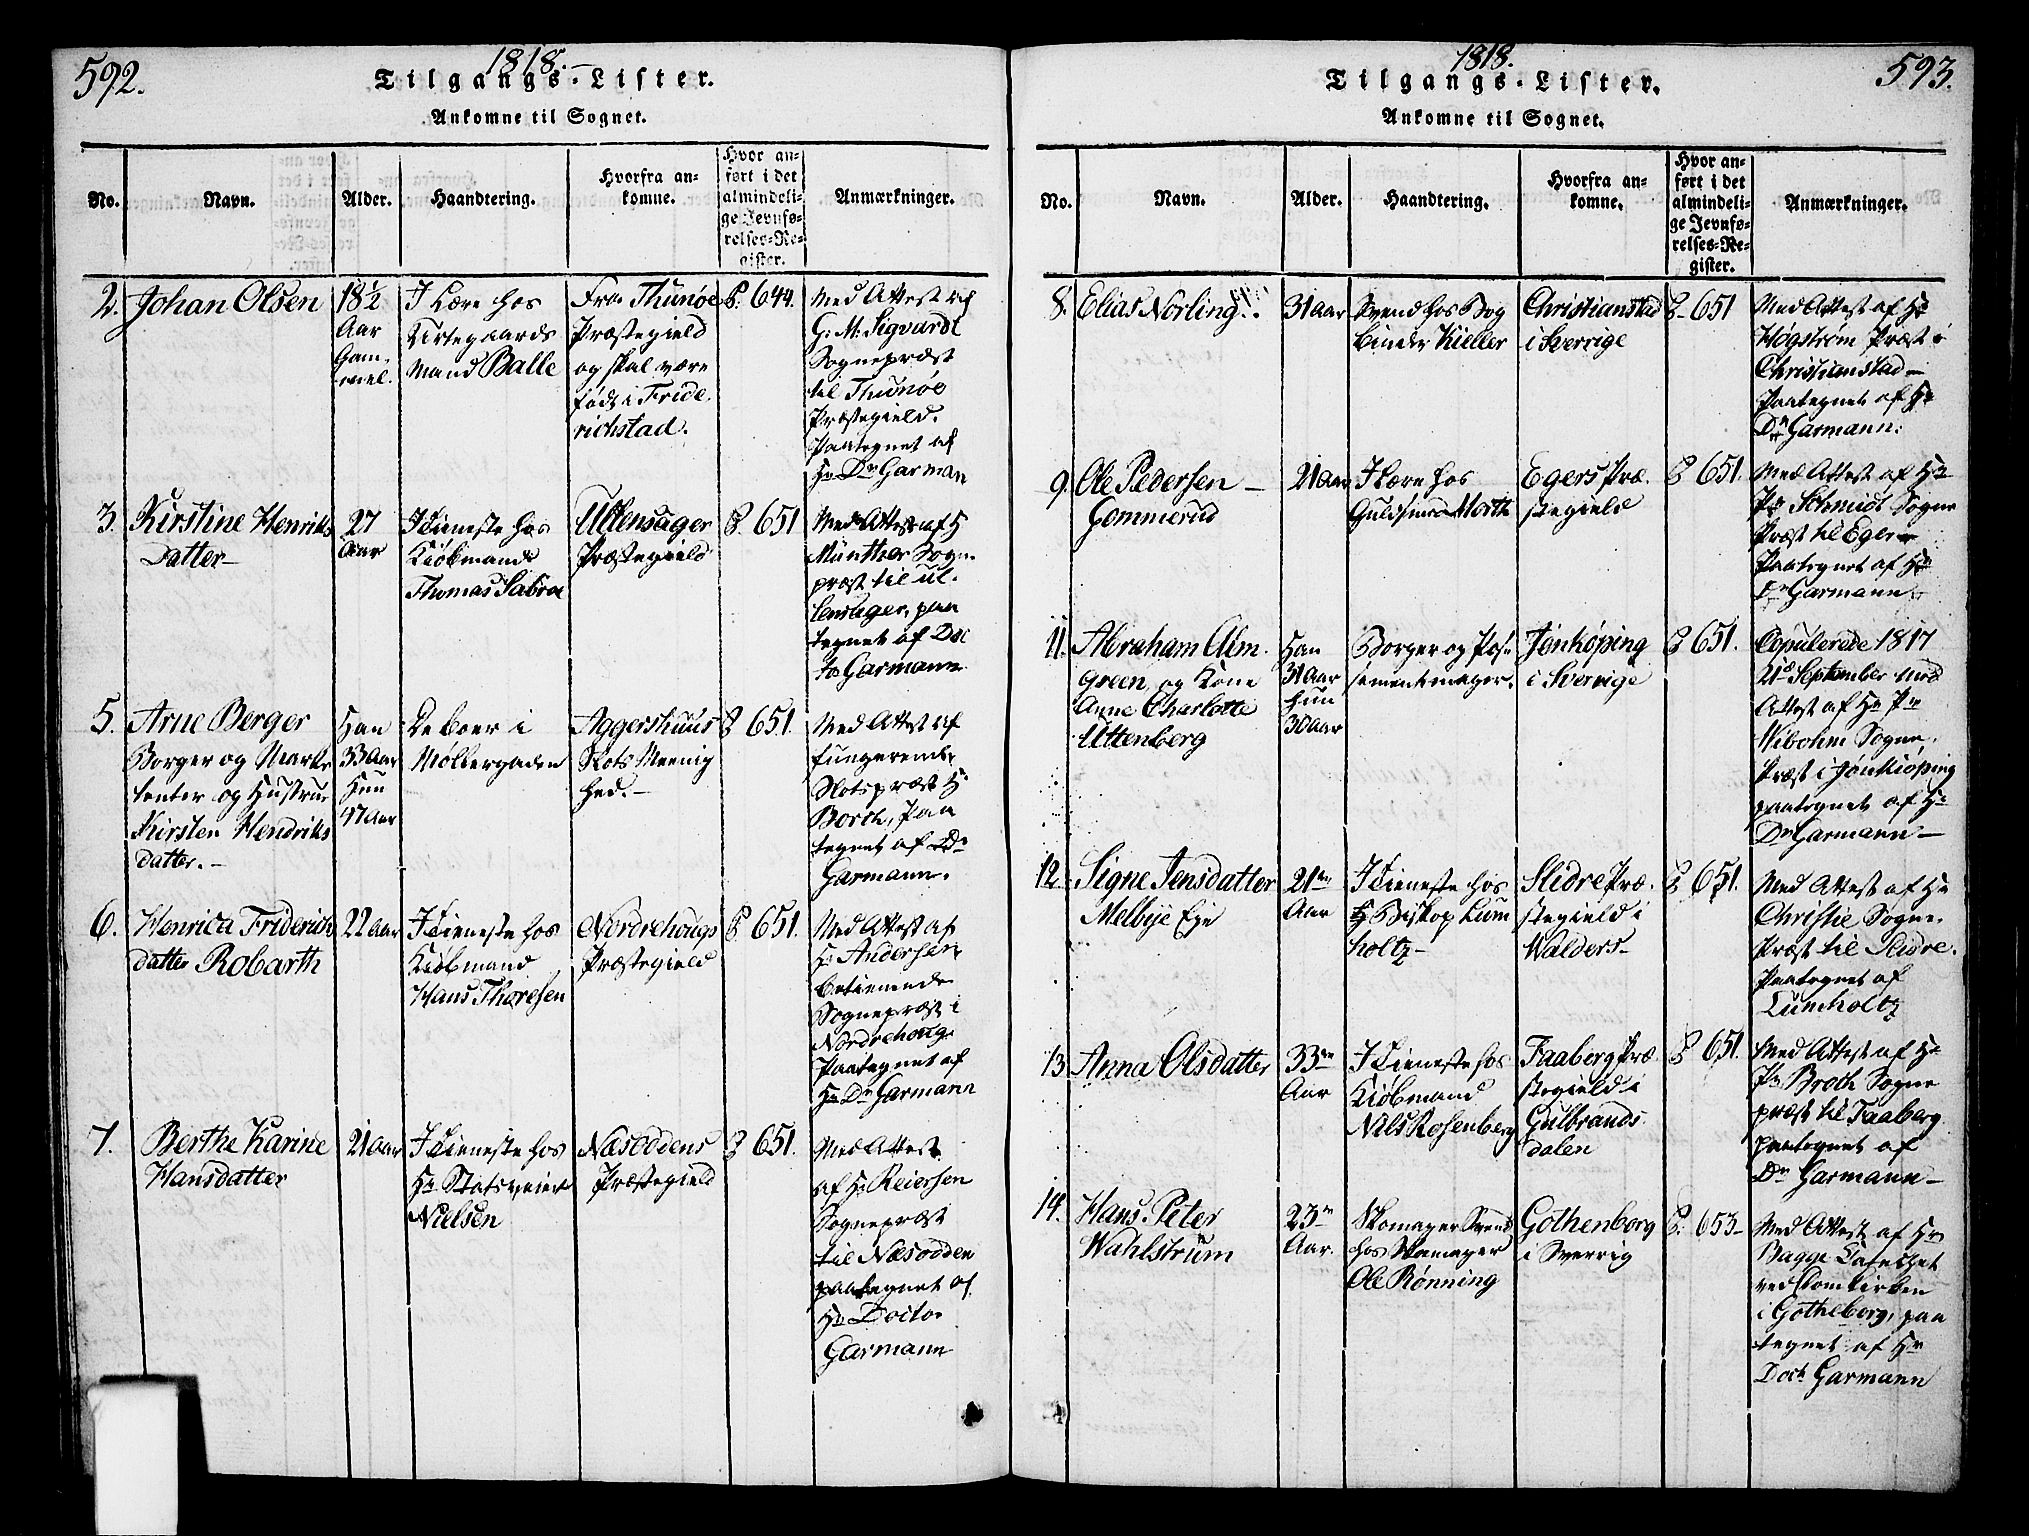 592.
1818.
Tilgangs-Lister.
Ankomne til Sognet.
No.
Navn.
Alder.
Haandtering.
Hvorfra an-
komne.
Hvor an-
ført i det
almindeli-
ge Jevnfø-
relses-Re-
gister.
Anmærkninger.
2.
Johan Olsen
18½
Aar
Gam-
mel.
I Lære hos
Urtegaards
Mand Balle
Fra Thunøe
Præstegield
og skal være
født i Fride-
richstad.
S. 644.
Med Attest af
G: M: Sigvardt
Sognepræst
til Thunøe
Præstegield.
Paategnet af
Hr Dr Garman
3.
Kirstine Henriks
Datter
27
Aar
I Tieneste hos
Kiøbmand
Thomas Sabroe
Ullensager
Præstegield
S. 651
Med Attest af H
Münther Sogne-
præst til Ul-
lensager, paa
tegnet af Doc
tr Garmann
5.
Arne Berger
Borger og Marke
tenter og Hustrue
Kirsten Hendriks
datter.
Han
33 Aar
Hun
47 Aar
De boer i
Møllergaden
Aggershuus
Slots Meenig
hed.
S 651.
Med Attest af
fungerende
Slotspræst H
Borch, Paa
tegnet af Dr
Garmann.
6.
Henrica Friderich
datter Robarth
22 Aar
I Tieneste hos
Kiøbmand
Hans Thoresen
Nordrehougs
Præstegield
S. 651.
Med Attest af
Hr Andersen,
betienende
Sognepræst i
Nordrehoug
Paategnet af
Hr Dr Garmann
7.
Berthe Karine
Hansdatter
21 Aar
I Tieneste hos
Hr Statsveier
Nielsen
Næsoddens
Præstegield
S 651.
Med Attest
af Hr Reiersen
Sognepræst
til Næsodden
paategnet af
Hr Doctor
Garmann
593.
1818.
Tilgangs-Lister.
Ankomne til Sognet.
No.
Navn.
Alder.
Haandtering.
Hvorfra an-
komne.
Hvor an-
ført i det
almindeli-
ge Jevnfø-
relses-Re-
gister.
Anmærkninger.
8.
Elias Norling.
31 Aar
Svend hos Bog
binder Kieller
Christianstad
i Sverrige
S 651
Med Attest af Hr
Høgstrøm Præst i
Christianstad
Paategnet af Hr
Dr Garmann.
9.
Ole Pedersen
Gommerud
21 Aar
I Lære hos
Guldsmed Morth
Egers Præ-
stegield
S 651.
Med Attest af Hr
Pr Schmidt Sogne
Præst til Eger
Paategnet af Hr
Dr Garmann.
11.
Abraham Alm-
green og Kone
Anne Charlotte
Uttenberg
Han
31 Aar
hun
30 Aar
Borger og Pose
mentmager.
Jenkøping
i Sverrige
S 651.
Copulerede 1817
21 September med
Attest af Hr Pr
Wibohm Sogne-
Præst i Jønkiøping
paategnet af Hr
Dr Garmann
12.
Signe Jensdatter
Melbye Eje
21
Aar
I Tieneste hos
H Biskop Lum
holtz
Slidre Præ-
stegield i
Walders
S 651.
Med Attest af Hr
Christie Sogne-
Præst til Slidre.
Paategnet af
Lumholtz
13
Anna Olsdatter
33
Aar
I Tieneste hos
Kiøbmand
Nils Rosenberg
Faaberg Præ
stegield i
Gulbrands-
dalen
S 651.
Med Attest af Hr
Pr Broch Sogne
præst til Faaberg
paategnet af
Dr Garmann
14.
Hans Peter
Wahlstrüm
23
Aar.
Skomager Svend
hos Skomager
Ole Rønning
Gothenborg
i Sverrig
S. 653
Med Attest af Hr
Bagge
ved Domkirken
i Gotheborg, paa
tegnet af Hr
Doct Garmann